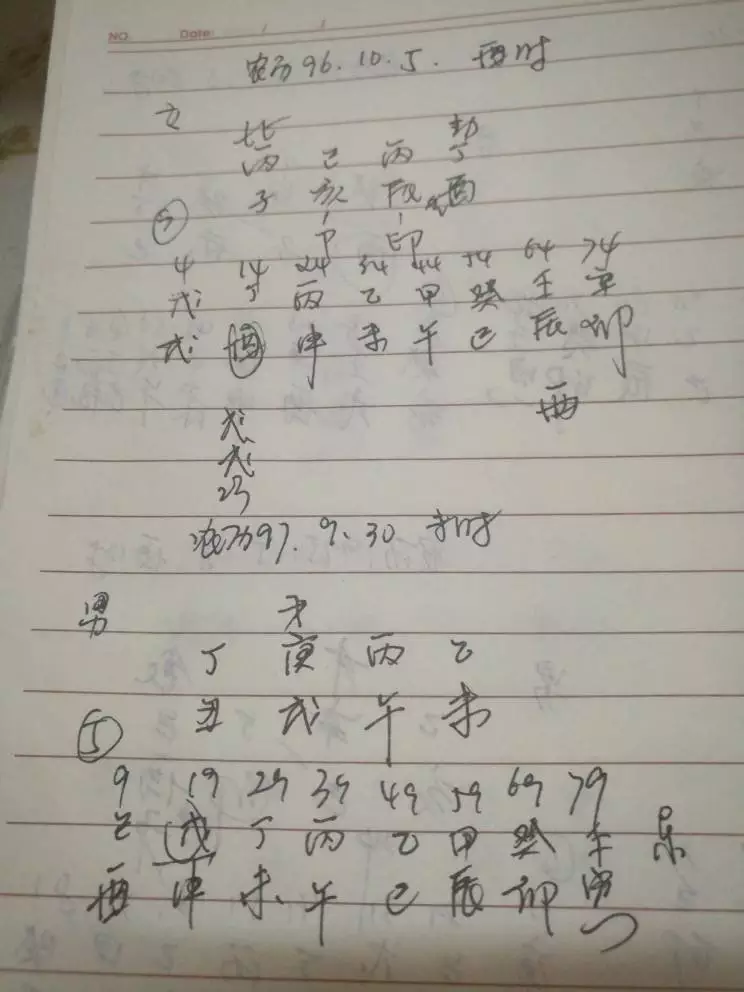 NO. Date: / /
农历96.10.5. 酉时
女
比 劫
丙 己 丙 丁
子 亥 辰 酉
印 印
4 14 24 34 44 54 64 74
戊 丁 丙 乙 甲 癸 壬 辛
戌 酉 申 未 午 巳 辰 卯
酉
农历97.9.30 未时
男 才
丁 庚 丙 乙
丑 戌 午 未
5
9 19 29 39 49 59 69 79
己 戊 丁 丙 乙 甲 癸 壬
酉 申 未 午 巳 辰 卯 寅